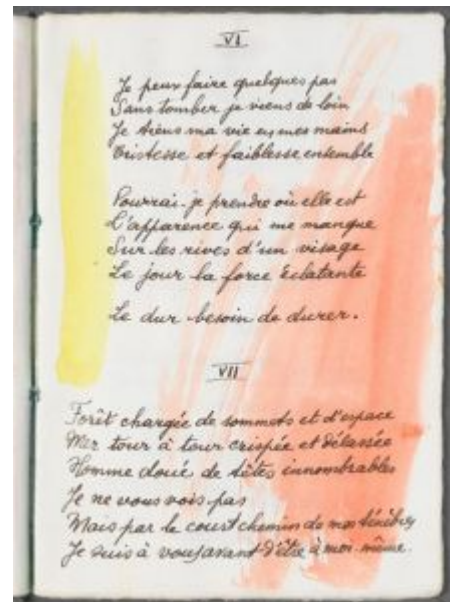 VI
Je peux faire quelques pas
Sans tomber je viens de loin
Je tiens ma vie en mes mains
Tristesse et faiblesse ensemble
Pourrai-je prendre où elle est
L'apparence qui me manque
Sur les rives d'un visage
Le jour la force éclatante
Le dur besoin de durer.
VII
Forêt chargée de sommets et d'espace
Mer tour à tour crispée et délassée
Homme doué de têtes innombrables
Je ne vous vois pas
Mais par le court chemin de mes ténèbres
Je suis à vous avant d'être à moi-même.